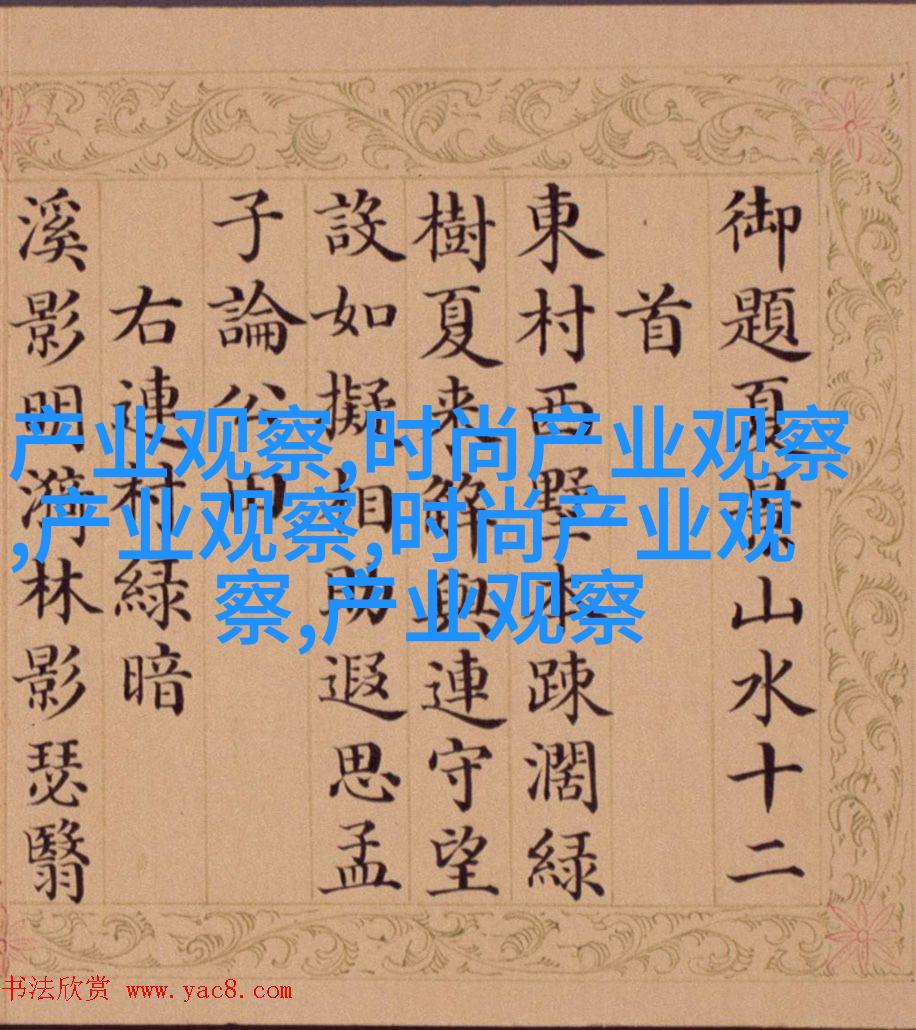 御題夏景山水十二
首
東村西墅木疎濶綠
樹夏来解與連守望
設如擬相助遐思孟
子論公田
右連村綠暗
溪影明漪林影瑟翳
产业观察,时尚产业观察
,产业观察,时尚产业观
察,产业观察
书法欣赏 www.yac8.com